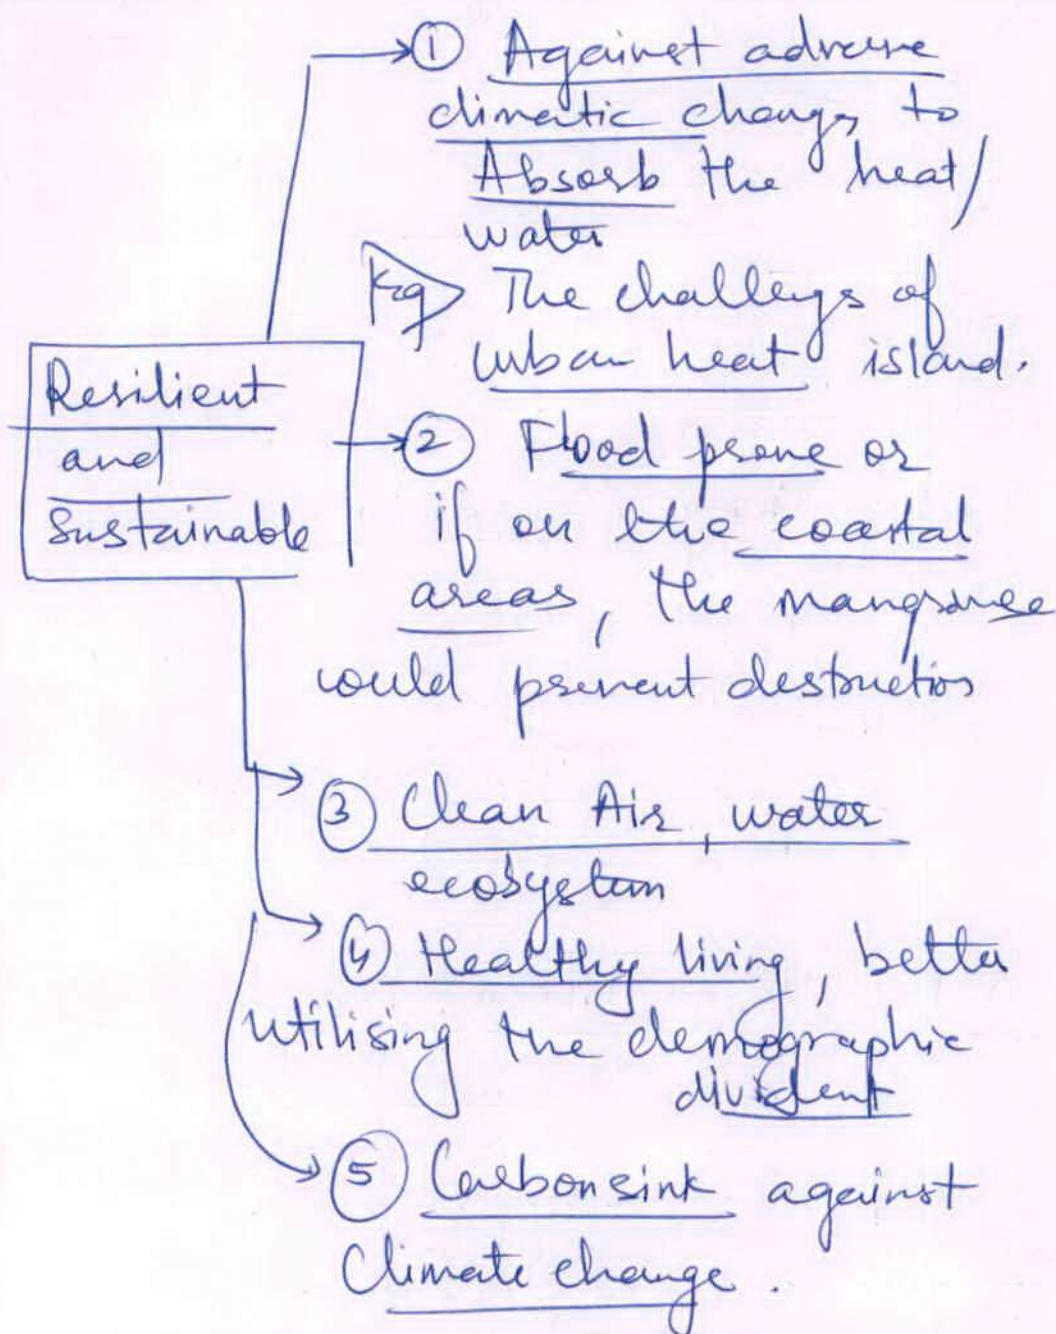 ① Against adverse
climatic change, to
Absorb the heat/
water
Eg> The challengs of
urban heat island.
Resilient
and
Sustainable
② Flood prone or
if on the coastal
areas, the mangroves
would prevent destruction
③ Clean Air, water
ecosystem
④ Healthy living, better
utilising the demographic
divident
⑤ Carbon sink against
Climate change.